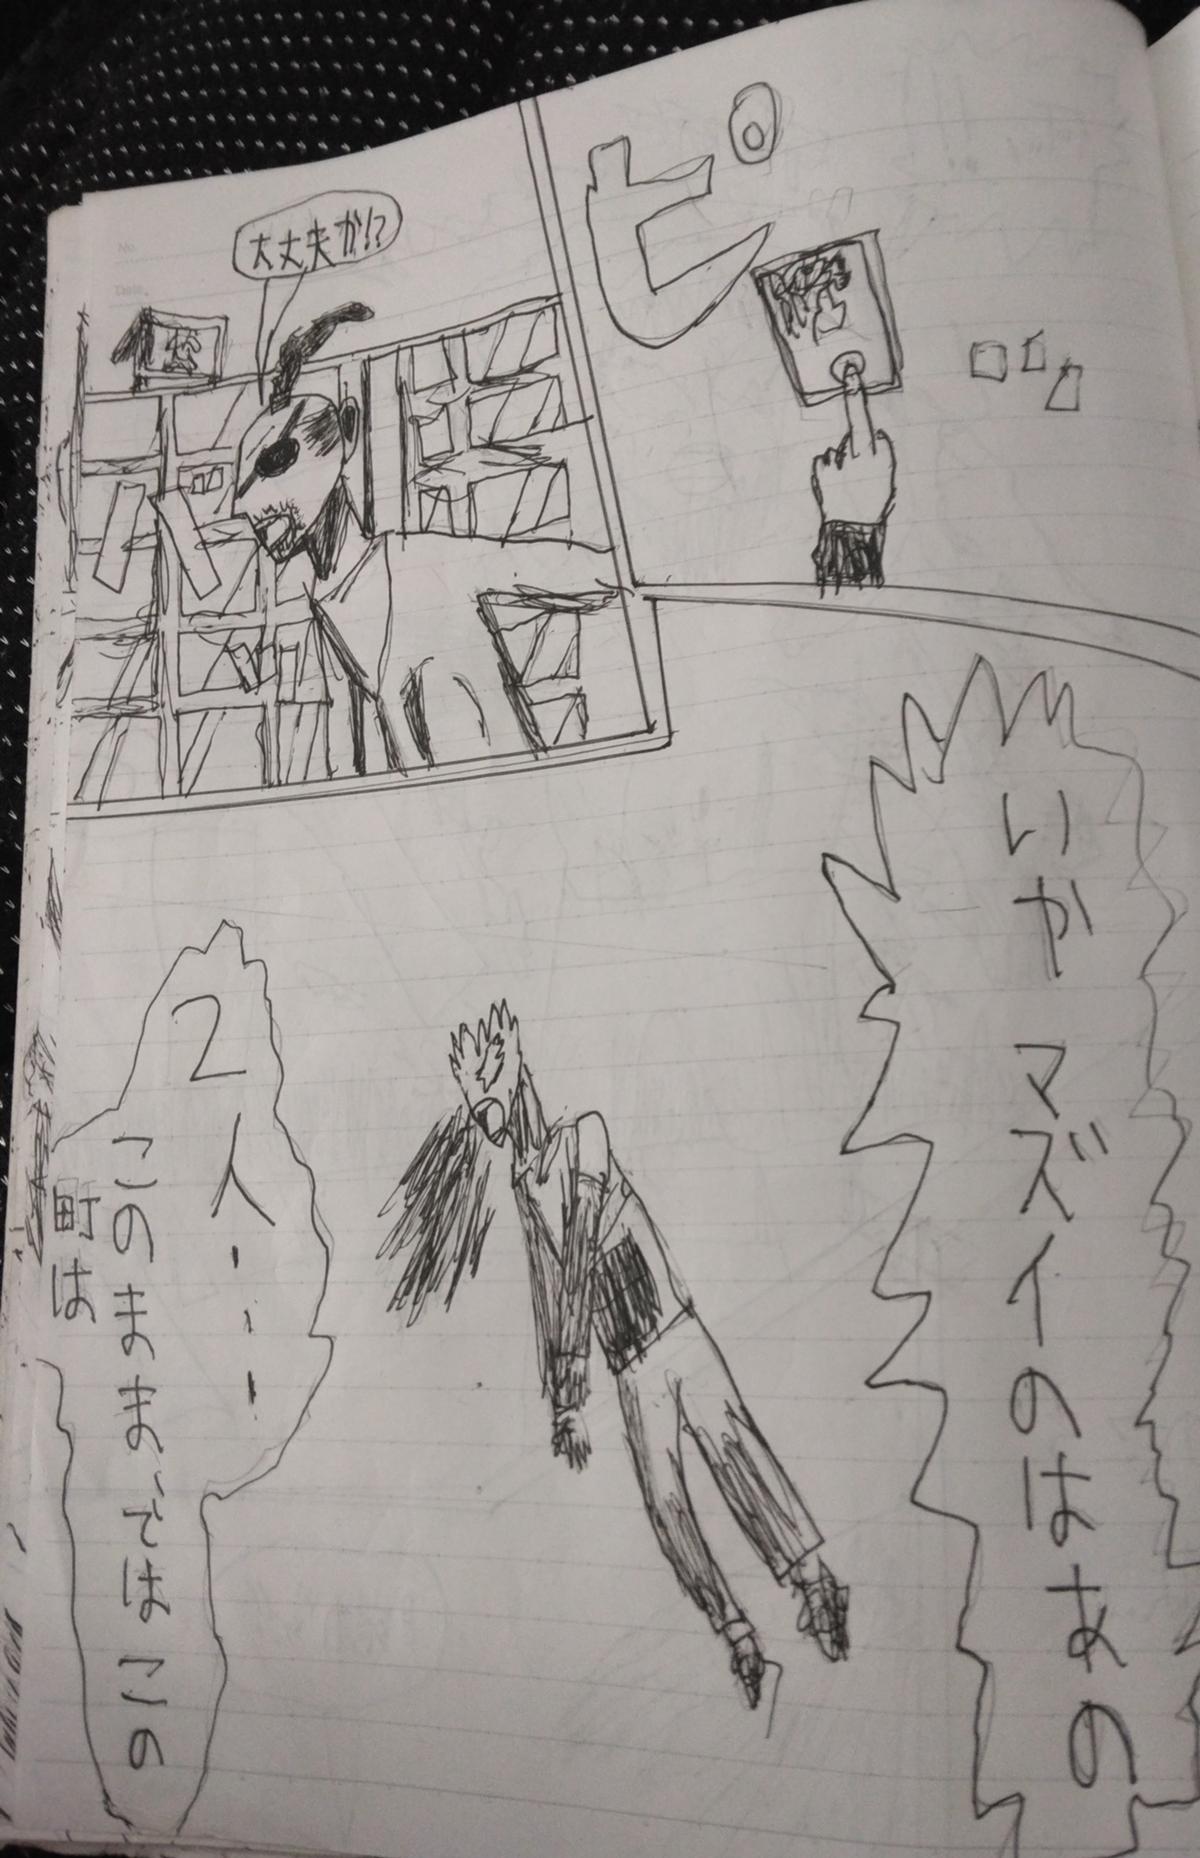 ピ
大丈夫か!?
いか マズイのはあの
2人・・・
このまま、では この
町は
No.
Date